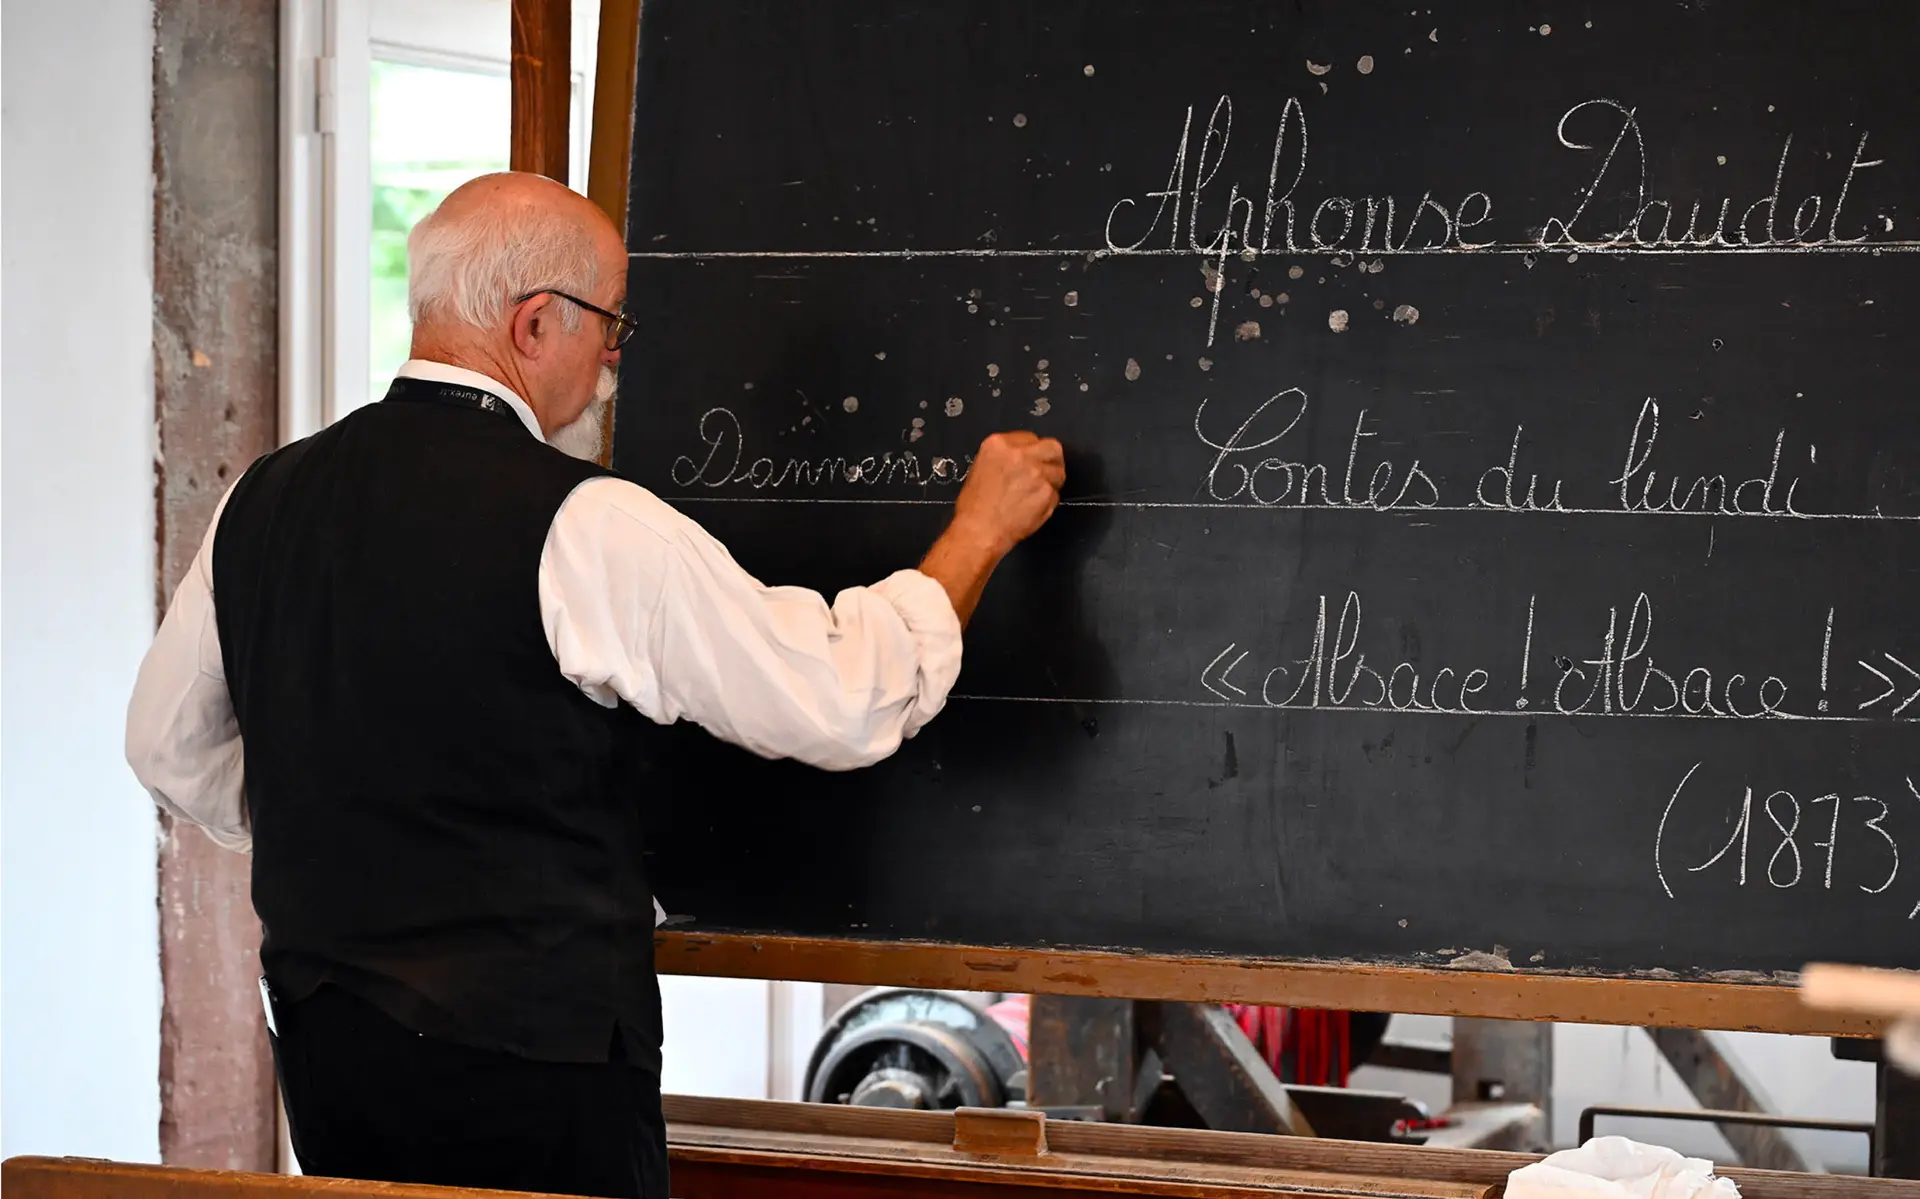 Alphonse Daudet.
Dannema
Contes du lundi.
« Alsace ! Alsace ! »
(1873)
eurex.fr